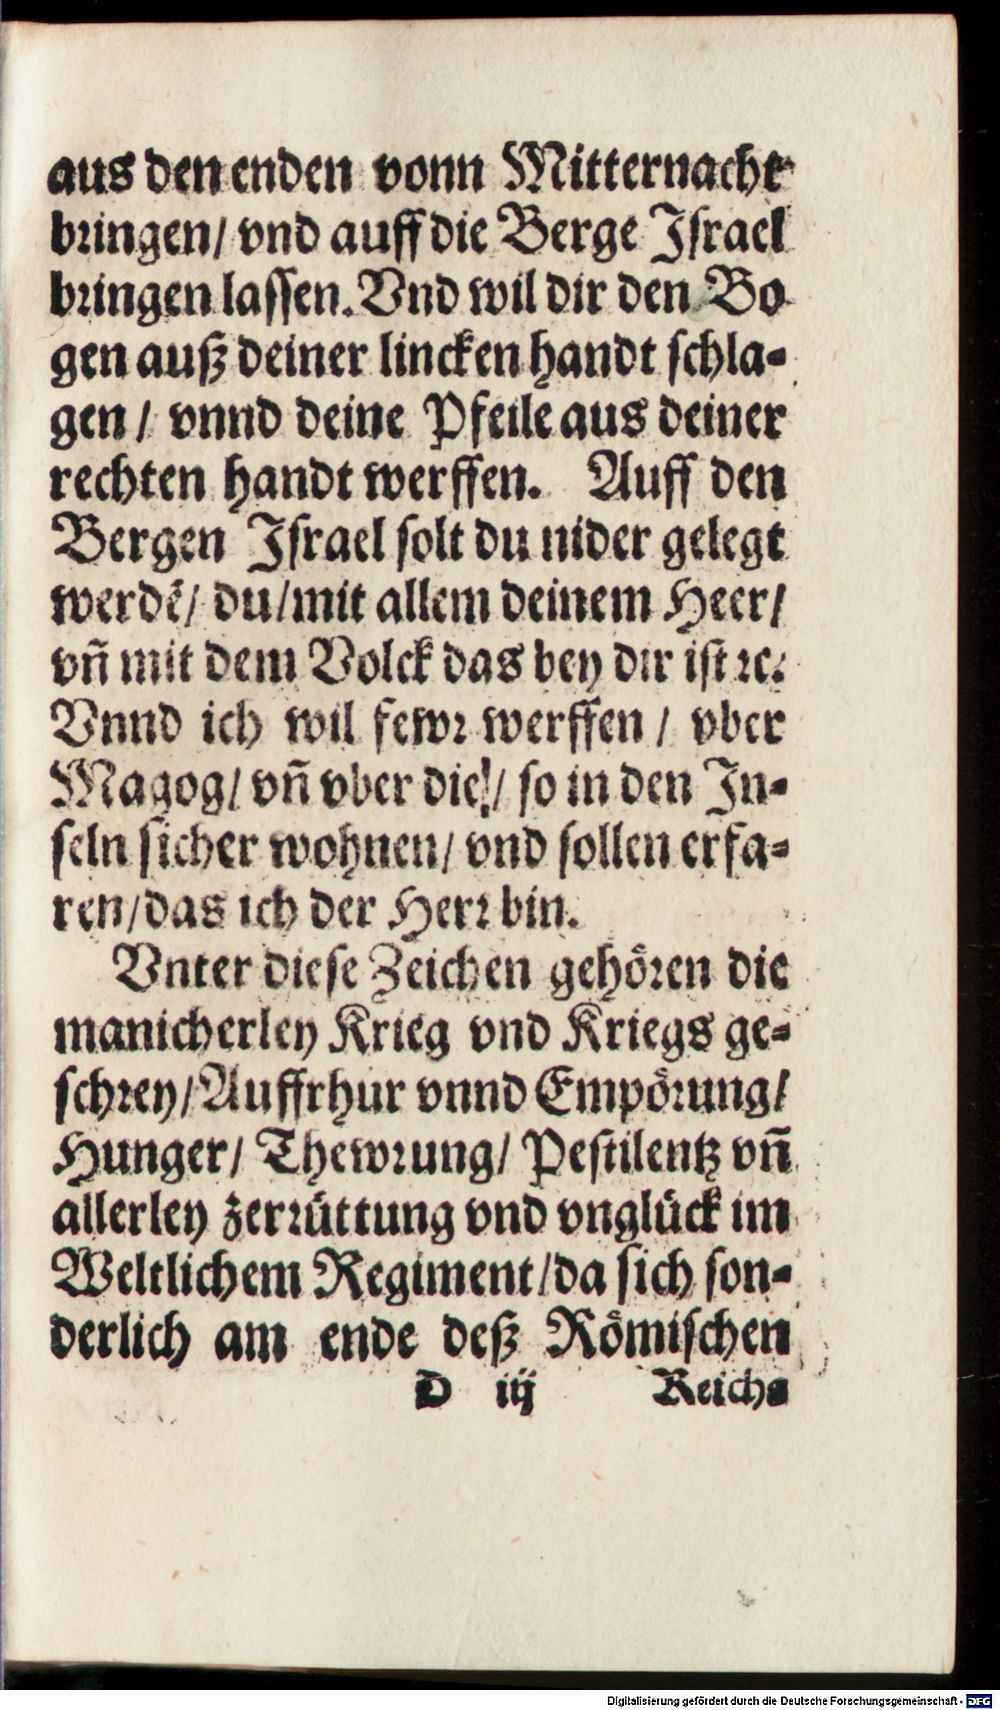 aus den enden vonn Mitternacht
bringen/ vnd auff die Berge Israel
bringen lassen. Vnd wil dir den Bo
gen auß deiner lincken handt schla-
gen / vnnd deine Pfeile aus deiner
rechten handt werffen. Auff den
Bergen Israel solt du nider gelegt
werdē/ du/mit allem deinem Heer/
vñ mit dem Volck das bey dir ist ꝛc.
Vnnd ich wil fewr werffen / vber
Magog/ vñ vber die!/ so in den In-
seln sicher wohnen/ vnd sollen erfa-
ren/das ich der Herr bin.
Vnter diese Zeichen gehören die
manicherley Krieg vnd Kriegs ge-
schrey/Auffrhur vnnd Empörung/
Hunger/ Thewrung/ Pestilentz vñ
allerley zerrüttung vnd vnglück im
Weltlichem Regiment/da sich son-
derlich am ende deß Römischen
D iij Reichs
Digitalisierung gefördert durch die Deutsche Forschungsgemeinschaft - DFG